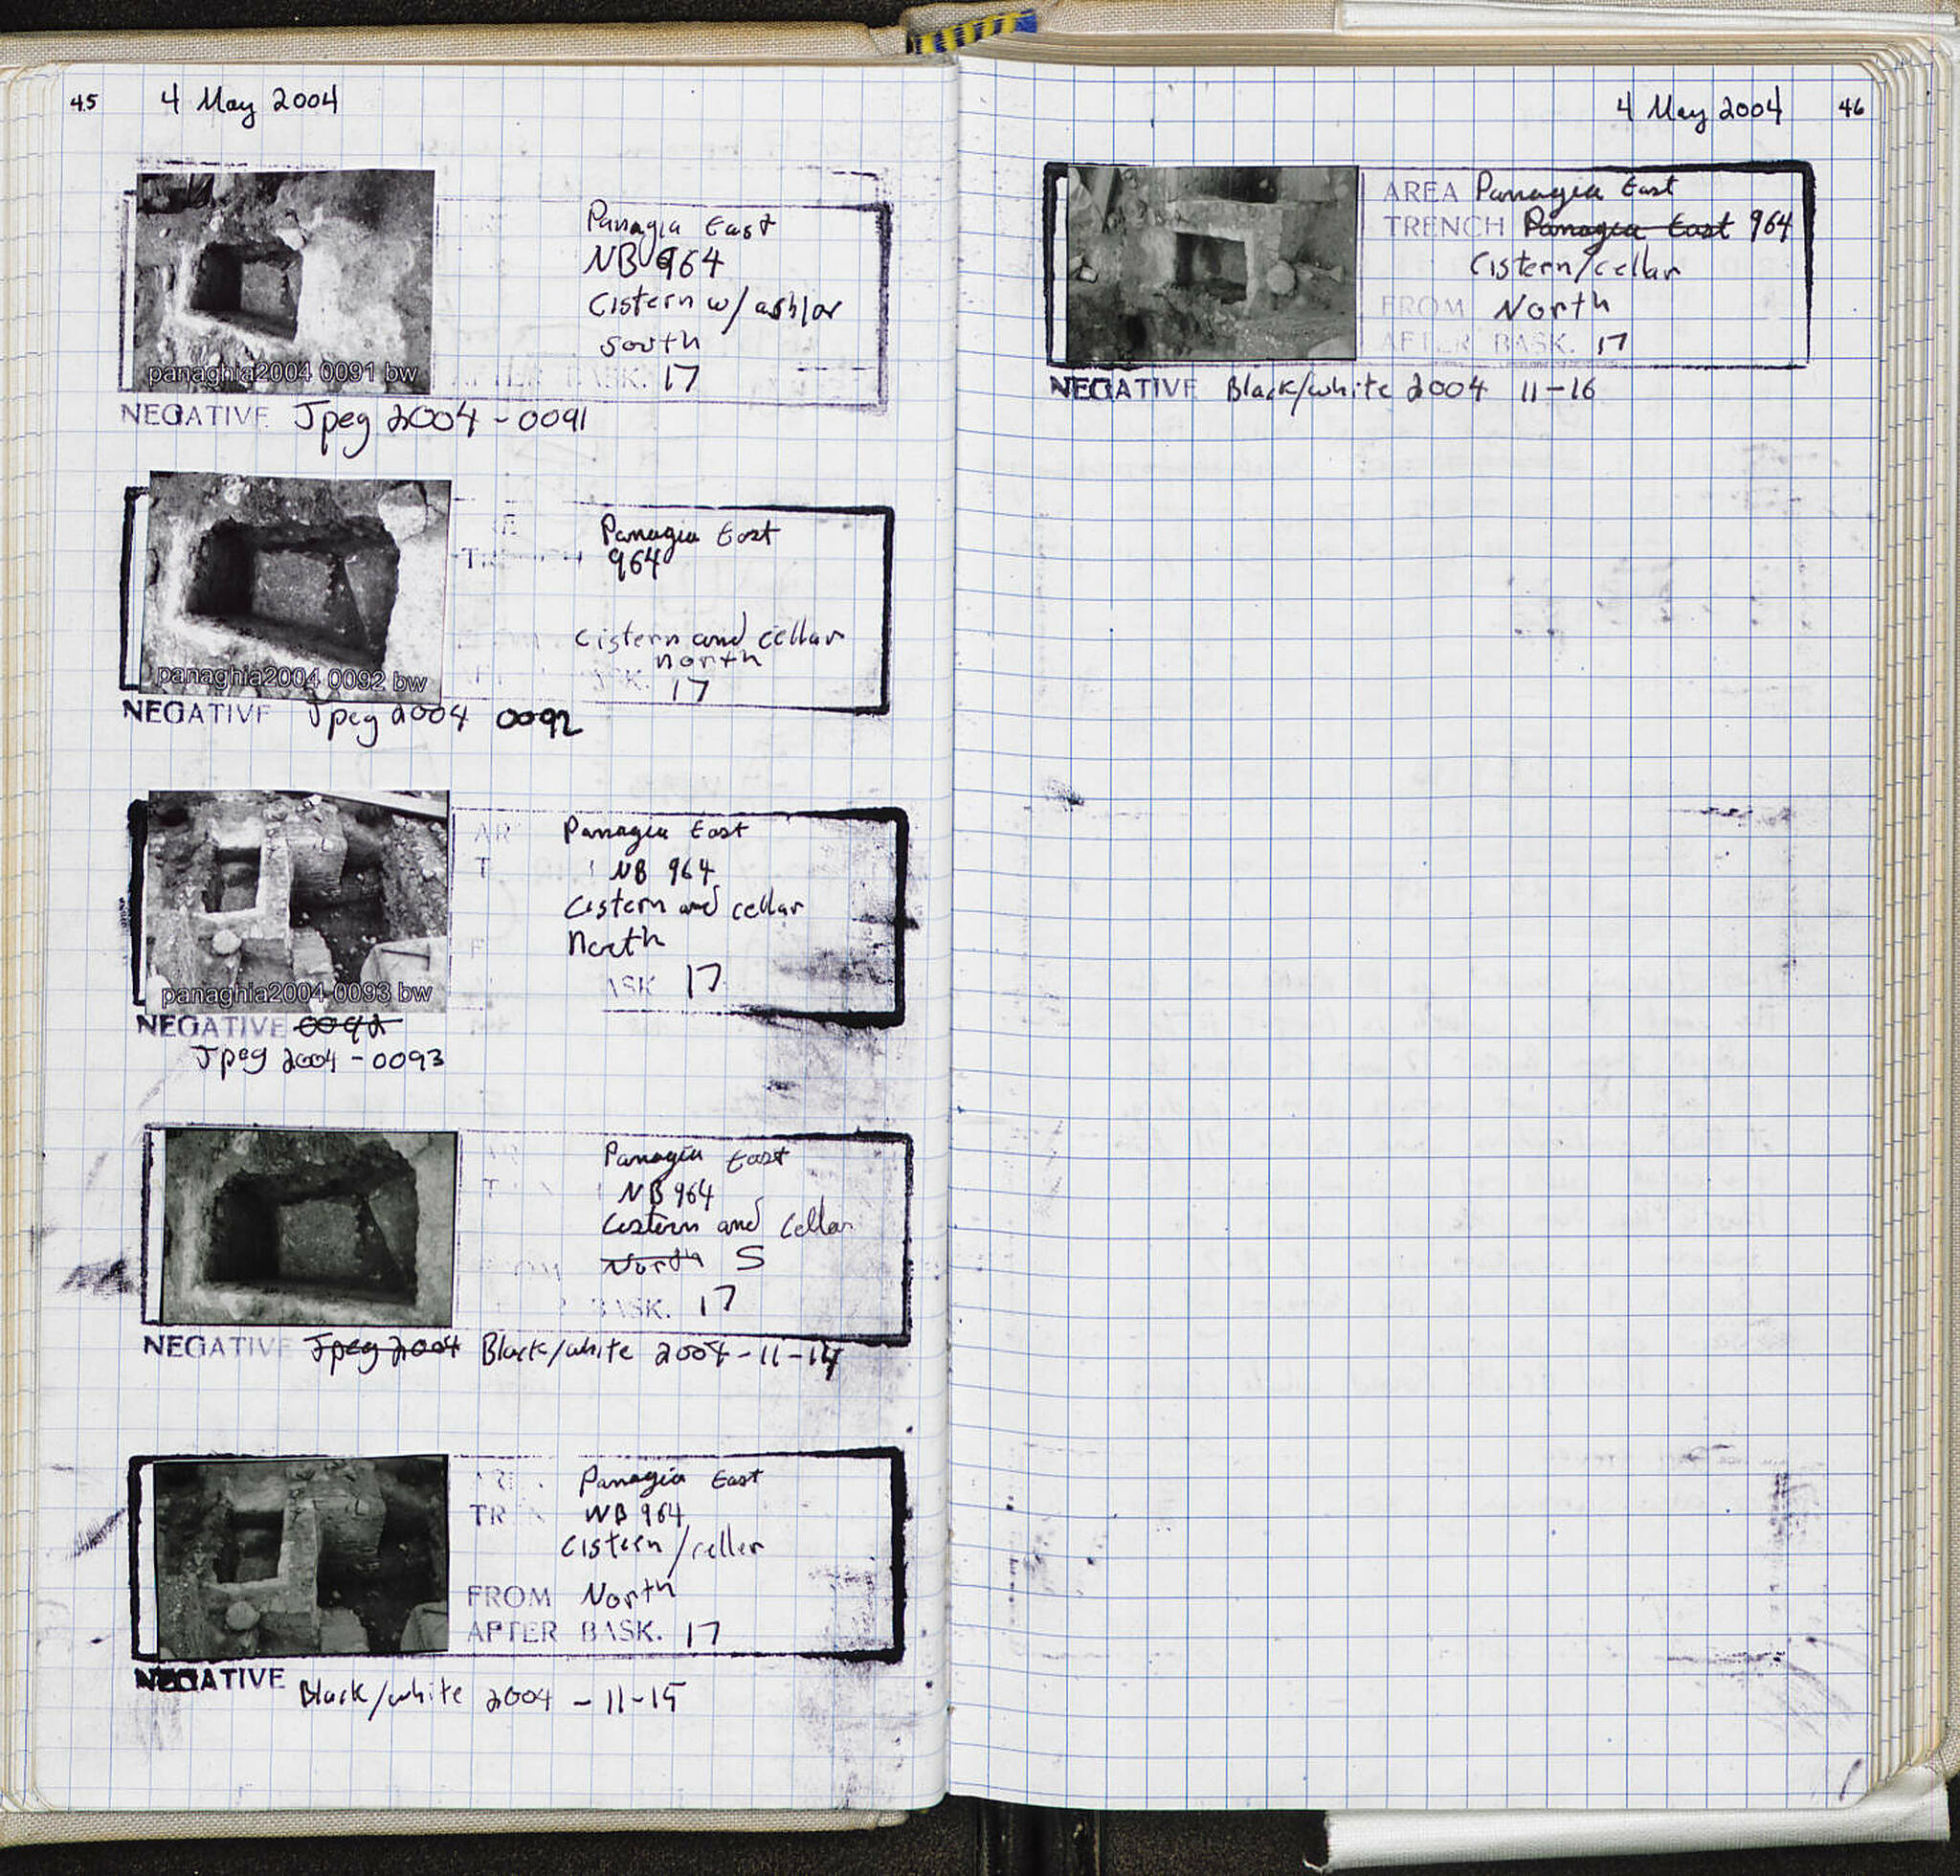 45 4 May 2004
Panagia East
NB 964
Cistern w/ ashlar
south
AFTER BASK. 17
panaghia2004 0091 bw
NEGATIVE Jpeg 2004-0091
Panagia East
964
cistern and cellar
north
17
panaghia2004 0092 bw
NEGATIVE Jpeg 2004 0092
Panagia East
NB 964
Cistern and cellar
North
ASK 17
panaghia2004 0093 bw
NEGATIVE 0092
Jpeg 2004-0093
Panagia East
NB 964
Cistern and Cellar
North S
BASK. 17
NEGATIVE Jpeg 2004 Black/white 2004-11-14
Panagia East
TREN NB 964
Cistern/cellar
FROM North
AFTER BASK. 17
NEGATIVE Black/white 2004 - 11-15
4 May 2004 46
AREA Panagia East
TRENCH Panagia East 964
Cistern/cellar
FROM North
AFTER BASK. 17
NEGATIVE Black/white 2004 11-16